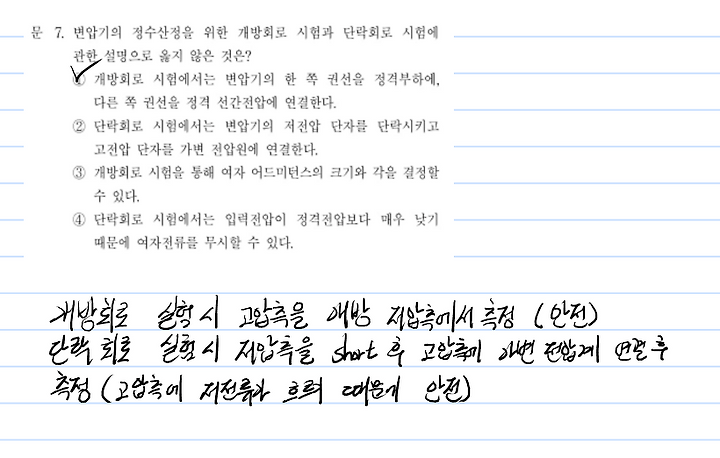 문 7. 변압기의 정수산정을 위한 개방회로 시험과 단락회로 시험에
관한 설명으로 옳지 않은 것은?
① 개방회로 시험에서는 변압기의 한 쪽 권선을 정격부하에,
다른 쪽 권선을 정격 선간전압에 연결한다.
② 단락회로 시험에서는 변압기의 저전압 단자를 단락시키고
고전압 단자를 가변 전압원에 연결한다.
③ 개방회로 시험을 통해 여자 어드미턴스의 크기와 각을 결정할
수 있다.
④ 단락회로 시험에서는 입력전압이 정격전압보다 매우 낮기
때문에 여자전류를 무시할 수 있다.
개방회로 실험 시 고압측을 개방 저압측에서 측정 (안전)
단락 회로 실험 시 저압측을 short 후 고압측에 가변 전압계 연결 후
측정 (고압측에 저전류가 흐르기 때문에 안전)